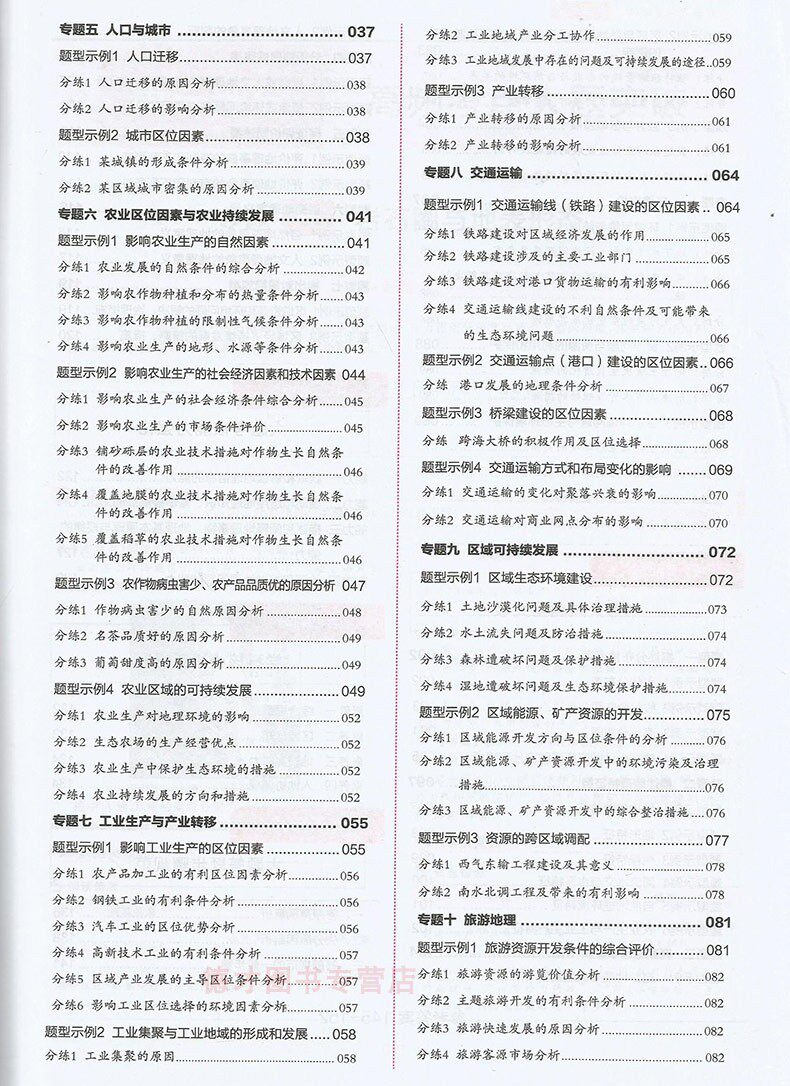 专题五 人口与城市 ........ 037
题型示例1 人口迁移 ........ 037
分练1 人口迁移的原因分析 ........ 038
分练2 人口迁移的影响分析 ........ 038
题型示例2 城市区位因素 ........ 038
分练1 某城镇的形成条件分析 ........ 039
分练2 某区域城市密集的原因分析 ........ 039
专题六 农业区位因素与农业持续发展 ........ 041
题型示例1 影响农业生产的自然因素 ........ 041
分练1 农业发展的自然条件的综合分析 ........ 042
分练2 影响农作物种植和分布的热量条件分析 ........ 043
分练3 影响农作物种植的限制性气候条件分析 ........ 043
分练4 影响农业生产的地形、水源等条件分析 ........ 043
题型示例2 影响农业生产的社会经济因素和技术因素 044
分练1 影响农业生产的社会经济条件综合分析 ........ 045
分练2 影响农业生产的市场条件评价 ........ 045
分练3 铺砂砾层的农业技术措施对作物生长自然条
件的改善作用 ........ 046
分练4 覆盖地膜的农业技术措施对作物生长自然条
件的改善作用 ........ 046
分练5 覆盖稻草的农业技术措施对作物生长自然条
件的改善作用 ........ 046
题型示例3 农作物病虫害少、农产品品质优的原因分析 047
分练1 作物病虫害少的自然原因分析 ........ 048
分练2 名茶品质好的原因分析 ........ 049
分练3 葡萄甜度高的原因分析 ........ 049
题型示例4 农业区域的可持续发展 ........ 049
分练1 农业生产对地理环境的影响 ........ 052
分练2 生态农场的生产经营优点 ........ 052
分练3 农业生产中保护生态环境的措施 ........ 052
分练4 农业持续发展的方向和措施 ........ 052
专题七 工业生产与产业转移 ........ 055
题型示例1 影响工业生产的区位因素 ........ 055
分练1 农产品加工业的有利区位因素分析 ........ 056
分练2 钢铁工业的有利条件分析 ........ 056
分练3 汽车工业的区位优势分析 ........ 056
分练4 高新技术工业的有利条件分析 ........ 057
分练5 区域产业发展的主导区位条件分析 ........ 057
分练6 影响工业区位选择的环境因素分析 ........ 057
题型示例2 工业集聚与工业地域的形成和发展 ........ 058
分练1 工业集聚的原因 ........ 058
分练2 工业地域产业分工协作 ........ 059
分练3 工业地域发展中存在的问题及可持续发展的途径 ..059
题型示例3 产业转移 ........ 060
分练1 产业转移的原因分析 ........ 061
分练2 产业转移的影响分析 ........ 061
专题八 交通运输 ........ 064
题型示例1 交通运输线（铁路）建设的区位因素 .. 064
分练1 铁路建设对区域经济发展的作用 ........ 065
分练2 铁路建设涉及的主要工业部门 ........ 065
分练3 铁路建设对港口货物运输的有利影响 ........ 066
分练4 交通运输线建设的不利自然条件及可能带来
的生态环境问题 ........ 066
题型示例2 交通运输点（港口）建设的区位因素 .. 066
分练 港口发展的地理条件分析 ........ 067
题型示例3 桥梁建设的区位因素 ........ 068
分练 跨海大桥的积极作用及区位选择 ........ 068
题型示例4 交通运输方式和布局变化的影响 ........ 069
分练1 交通运输的变化对聚落兴衰的影响 ........ 070
分练2 交通运输对商业网点分布的影响 ........ 070
专题九 区域可持续发展 ........ 072
题型示例1 区域生态环境建设 ........ 072
分练1 土地沙漠化问题及具体治理措施 ........ 073
分练2 水土流失问题及防治措施 ........ 074
分练3 森林遭破坏问题及保护措施 ........ 074
分练4 湿地遭破坏问题及生态环境保护措施 ........ 074
题型示例2 区域能源、矿产资源的开发 ........ 075
分练1 区域能源开发方向与区位条件的分析 ........ 076
分练2 区域能源、矿产资源开发中的环境污染及治理
措施 ........ 076
分练3 区域能源、矿产资源开发中的综合整治措施 ... 076
题型示例3 资源的跨区域调配 ........ 077
分练1 西气东输工程建设及其意义 ........ 078
分练2 南水北调工程及带来的有利影响 ........ 078
专题十 旅游地理 ........ 081
题型示例1 旅游资源开发条件的综合评价 ........ 081
分练1 旅游资源的游览价值分析 ........ 082
分练2 主题旅游开发的有利条件分析 ........ 082
分练3 旅游快速发展的原因分析 ........ 082
分练4 旅游客源市场分析 ........ 082
德才图书专营店